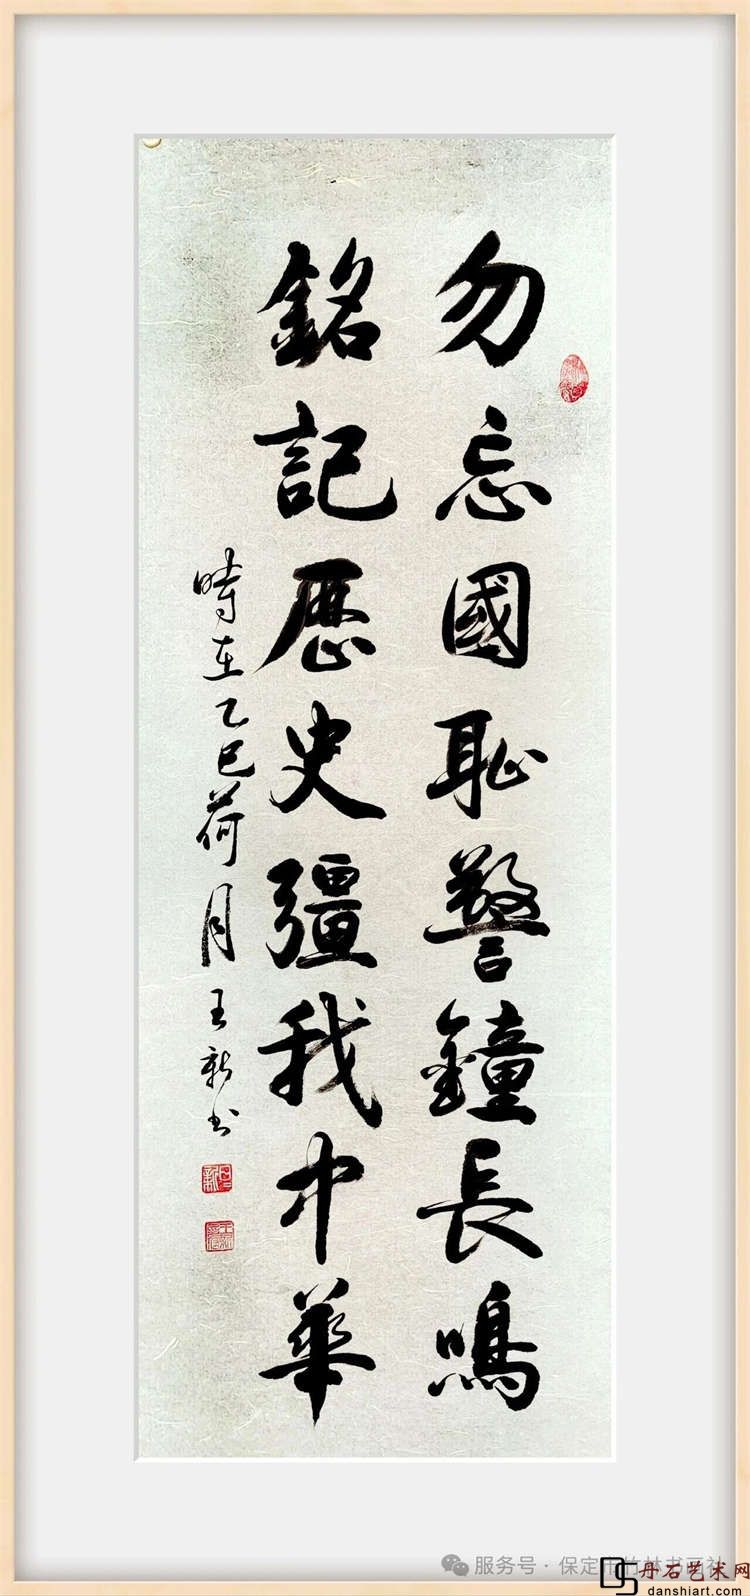 勿忘國恥警鐘長鳴
銘記歷史彊我中華
時在乙巳荷月王新书
服务号·保定市竹林书画社
丹石艺术网
danshiart.com